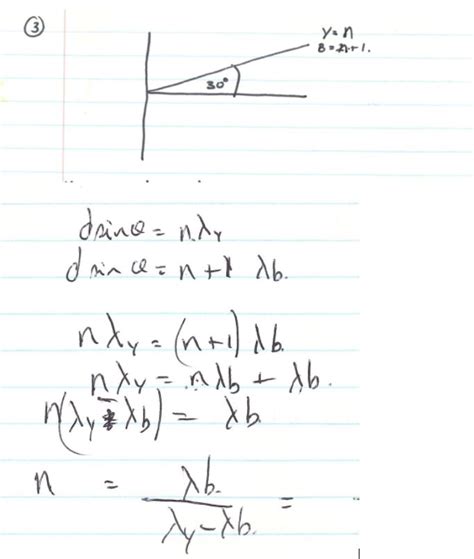 ③
Y = n
B = n+1.
30°
d sin θ = n λy
d sin θ = n + 1 λb.
n λy = (n+1) λb.
n λy = n λb + λb.
n(λy - λb) = λb
n = λb. / λy - λb. =